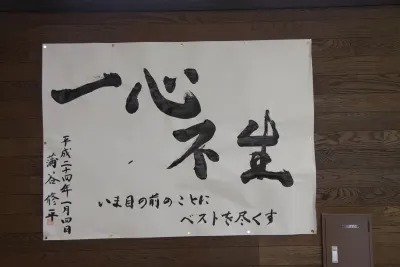 一心
不生
いま目の前のことに
ベストを尽くす
平成二十四年一月四日
蒲谷修平